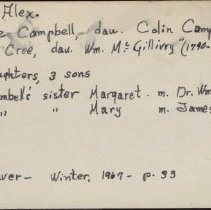 Alex.
Campbell, dau. Colin Camp
Cree, dau. Wm. McGillivry (1790-
ghters, 3 sons
mbell's sister Margaret m. Dr. Wm
" " Mary m. James
ver - Winter, 1967 - p. 33